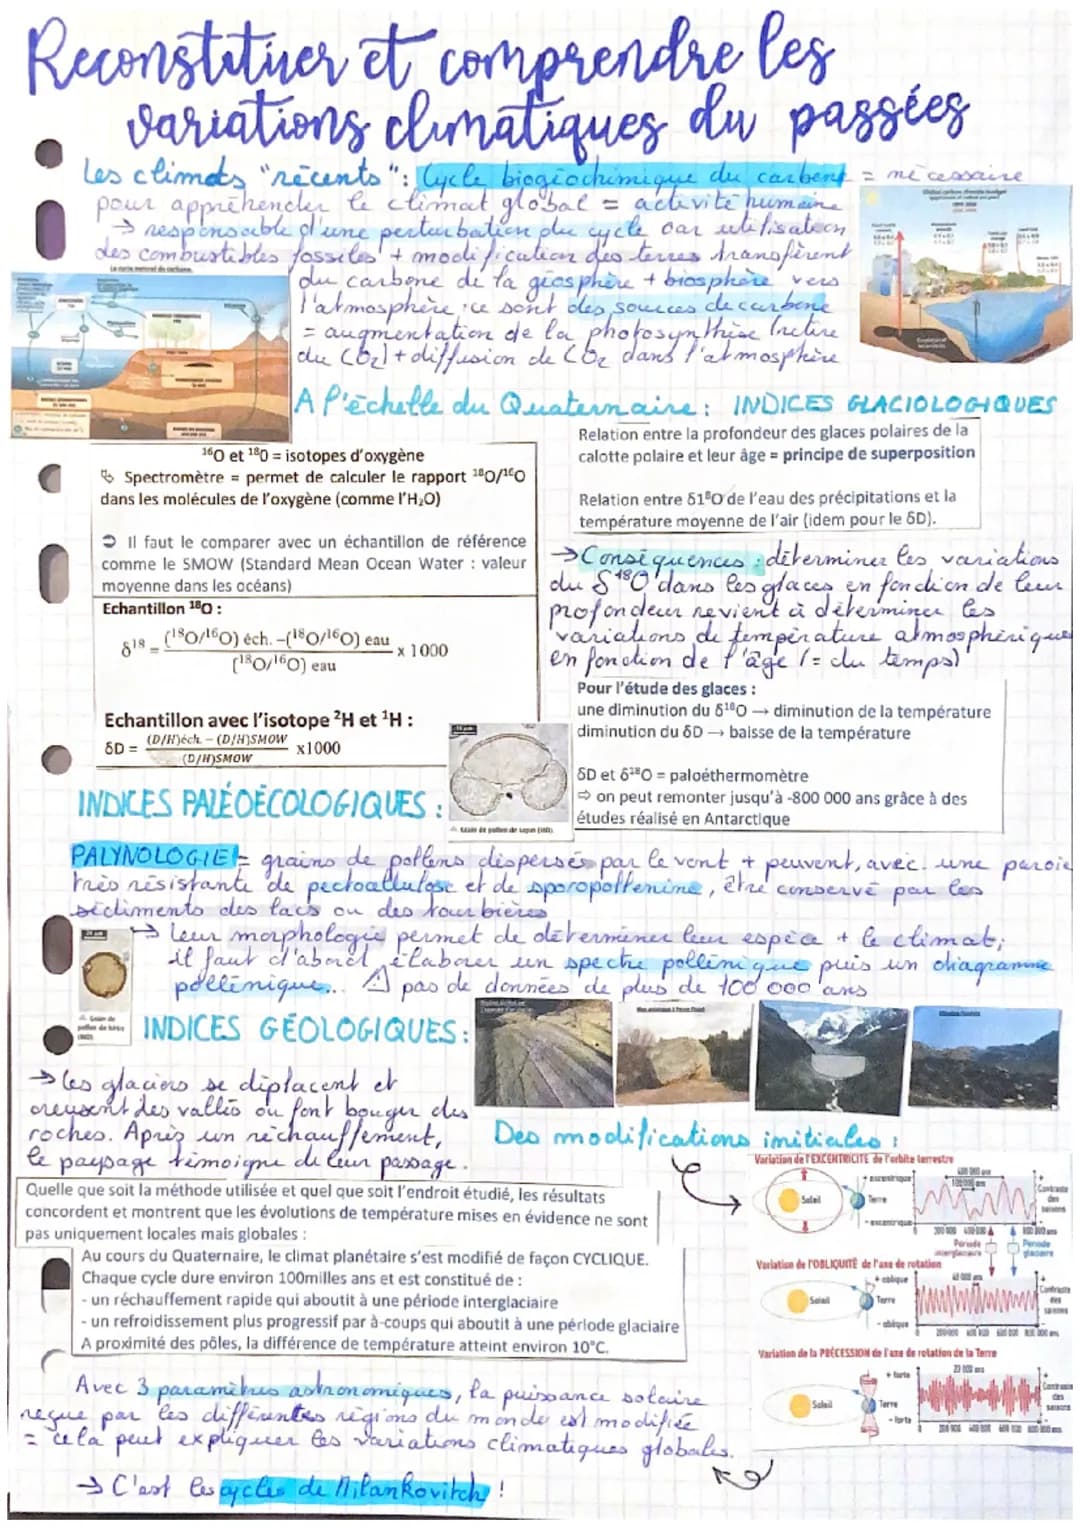 Reconstituer et comprendre les
variations climatiques du passées
Les climats "récents" : Cycle biogéochimique du carbent = nécessaire
pour appréhender le climat global = activité humaine
→ responsable d'une perturbation du cycle car utilisation
des combustibles fossiles + modification des terres transfèrent
du carbone de la géosphère + biosphère vers
l'atmosphère ; ce sont des sources de carbone
= augmentation de la photosynthèse (retire
du CO₂) + diffusion de CO₂ dans l'atmosphère
Le cycle naturel du carbone.
A l'échelle du Quaternaire : INDICES GLACIOLOGIQUES
¹⁶O et ¹⁸O = isotopes d'oxygène
Spectromètre = permet de calculer le rapport ¹⁸O/¹⁶O
dans les molécules de l'oxygène (comme l'H₂O)
➲ Il faut le comparer avec un échantillon de référence
comme le SMOW (Standard Mean Ocean Water : valeur
moyenne dans les océans)
Echantillon ¹⁸O :
δ¹⁸ = (¹⁸O/¹⁶O) éch. –(¹⁸O/¹⁶O) eau / (¹⁸O/¹⁶O) eau x 1000
Echantillon avec l'isotope ²H et ¹H :
δD = (D/H)éch. – (D/H)SMOW / (D/H)SMOW x1000
Relation entre la profondeur des glaces polaires de la
calotte polaire et leur âge = principe de superposition
Relation entre δ1⁸O de l'eau des précipitations et la
température moyenne de l'air (idem pour le δD).
→ Conséquences : déterminer les variations
du δ¹⁸O dans les glaces en fonction de leur
profondeur revient à déterminer les
variations de température atmosphérique
en fonction de l'âge (= du temps)
Pour l'étude des glaces :
une diminution du δ¹⁸O → diminution de la température
diminution du δD → baisse de la température
δD et δ¹⁸O = paloéthermomètre
⇨ on peut remonter jusqu'à -800 000 ans grâce à des
études réalisé en Antarctique
INDICES PALÉOÉCOLOGIQUES :
Grain de pollen de sapin (MO).
PALYNOLOGIE = grains de pollens dispersés par le vent + peuvent, avec une paroie
très résistante de pectocellulose et de sporopollenine, être conservé par les
sédiments des lacs ou des tourbières
→ leur morphologie permet de déterminer leur espèce + le climat ;
il faut d'abord élaborer un spectre pollénique puis un diagramme
pollénique... ⚠ pas de données de plus de 100 000 ans
Grain de
pollen de hêtre
(MO).
INDICES GÉOLOGIQUES :
→ les glaciers se déplacent et
creusent des vallés ou font bouger des
roches. Après un réchauffement,
le paysage témoigne de leur passage.
Des modifications initiales :
Quelle que soit la méthode utilisée et quel que soit l'endroit étudié, les résultats
concordent et montrent que les évolutions de température mises en évidence ne sont
pas uniquement locales mais globales :
Au cours du Quaternaire, le climat planétaire s'est modifié de façon CYCLIQUE.
Chaque cycle dure environ 100milles ans et est constitué de :
- un réchauffement rapide qui aboutit à une période interglaciaire
- un refroidissement plus progressif par à-coups qui aboutit à une période glaciaire
A proximité des pôles, la différence de température atteint environ 10°C.
Variation de l'EXCENTRICITÉ de l'orbite terrestre
+ excentrique
Soleil
Terre
- excentrique
400 000 ans
100 000 ans
Contraste
des
saisons
Période
interglaciaire
Période
glaciaire
Variation de l'OBLIQUITÉ de l'axe de rotation
+ oblique
Soleil
Terre
- oblique
Contraste
des
saisons
Variation de la PRÉCESSION de l'axe de rotation de la Terre
+ forte
Soleil
Terre
- forte
Contraste
des
saisons
Avec 3 paramètres astronomiques, la puissance solaire
reçue par les différentes régions du monde est modifiée
= cela peut expliquer les variations climatiques globales.
→ C'est les cycles de Milankovitch !